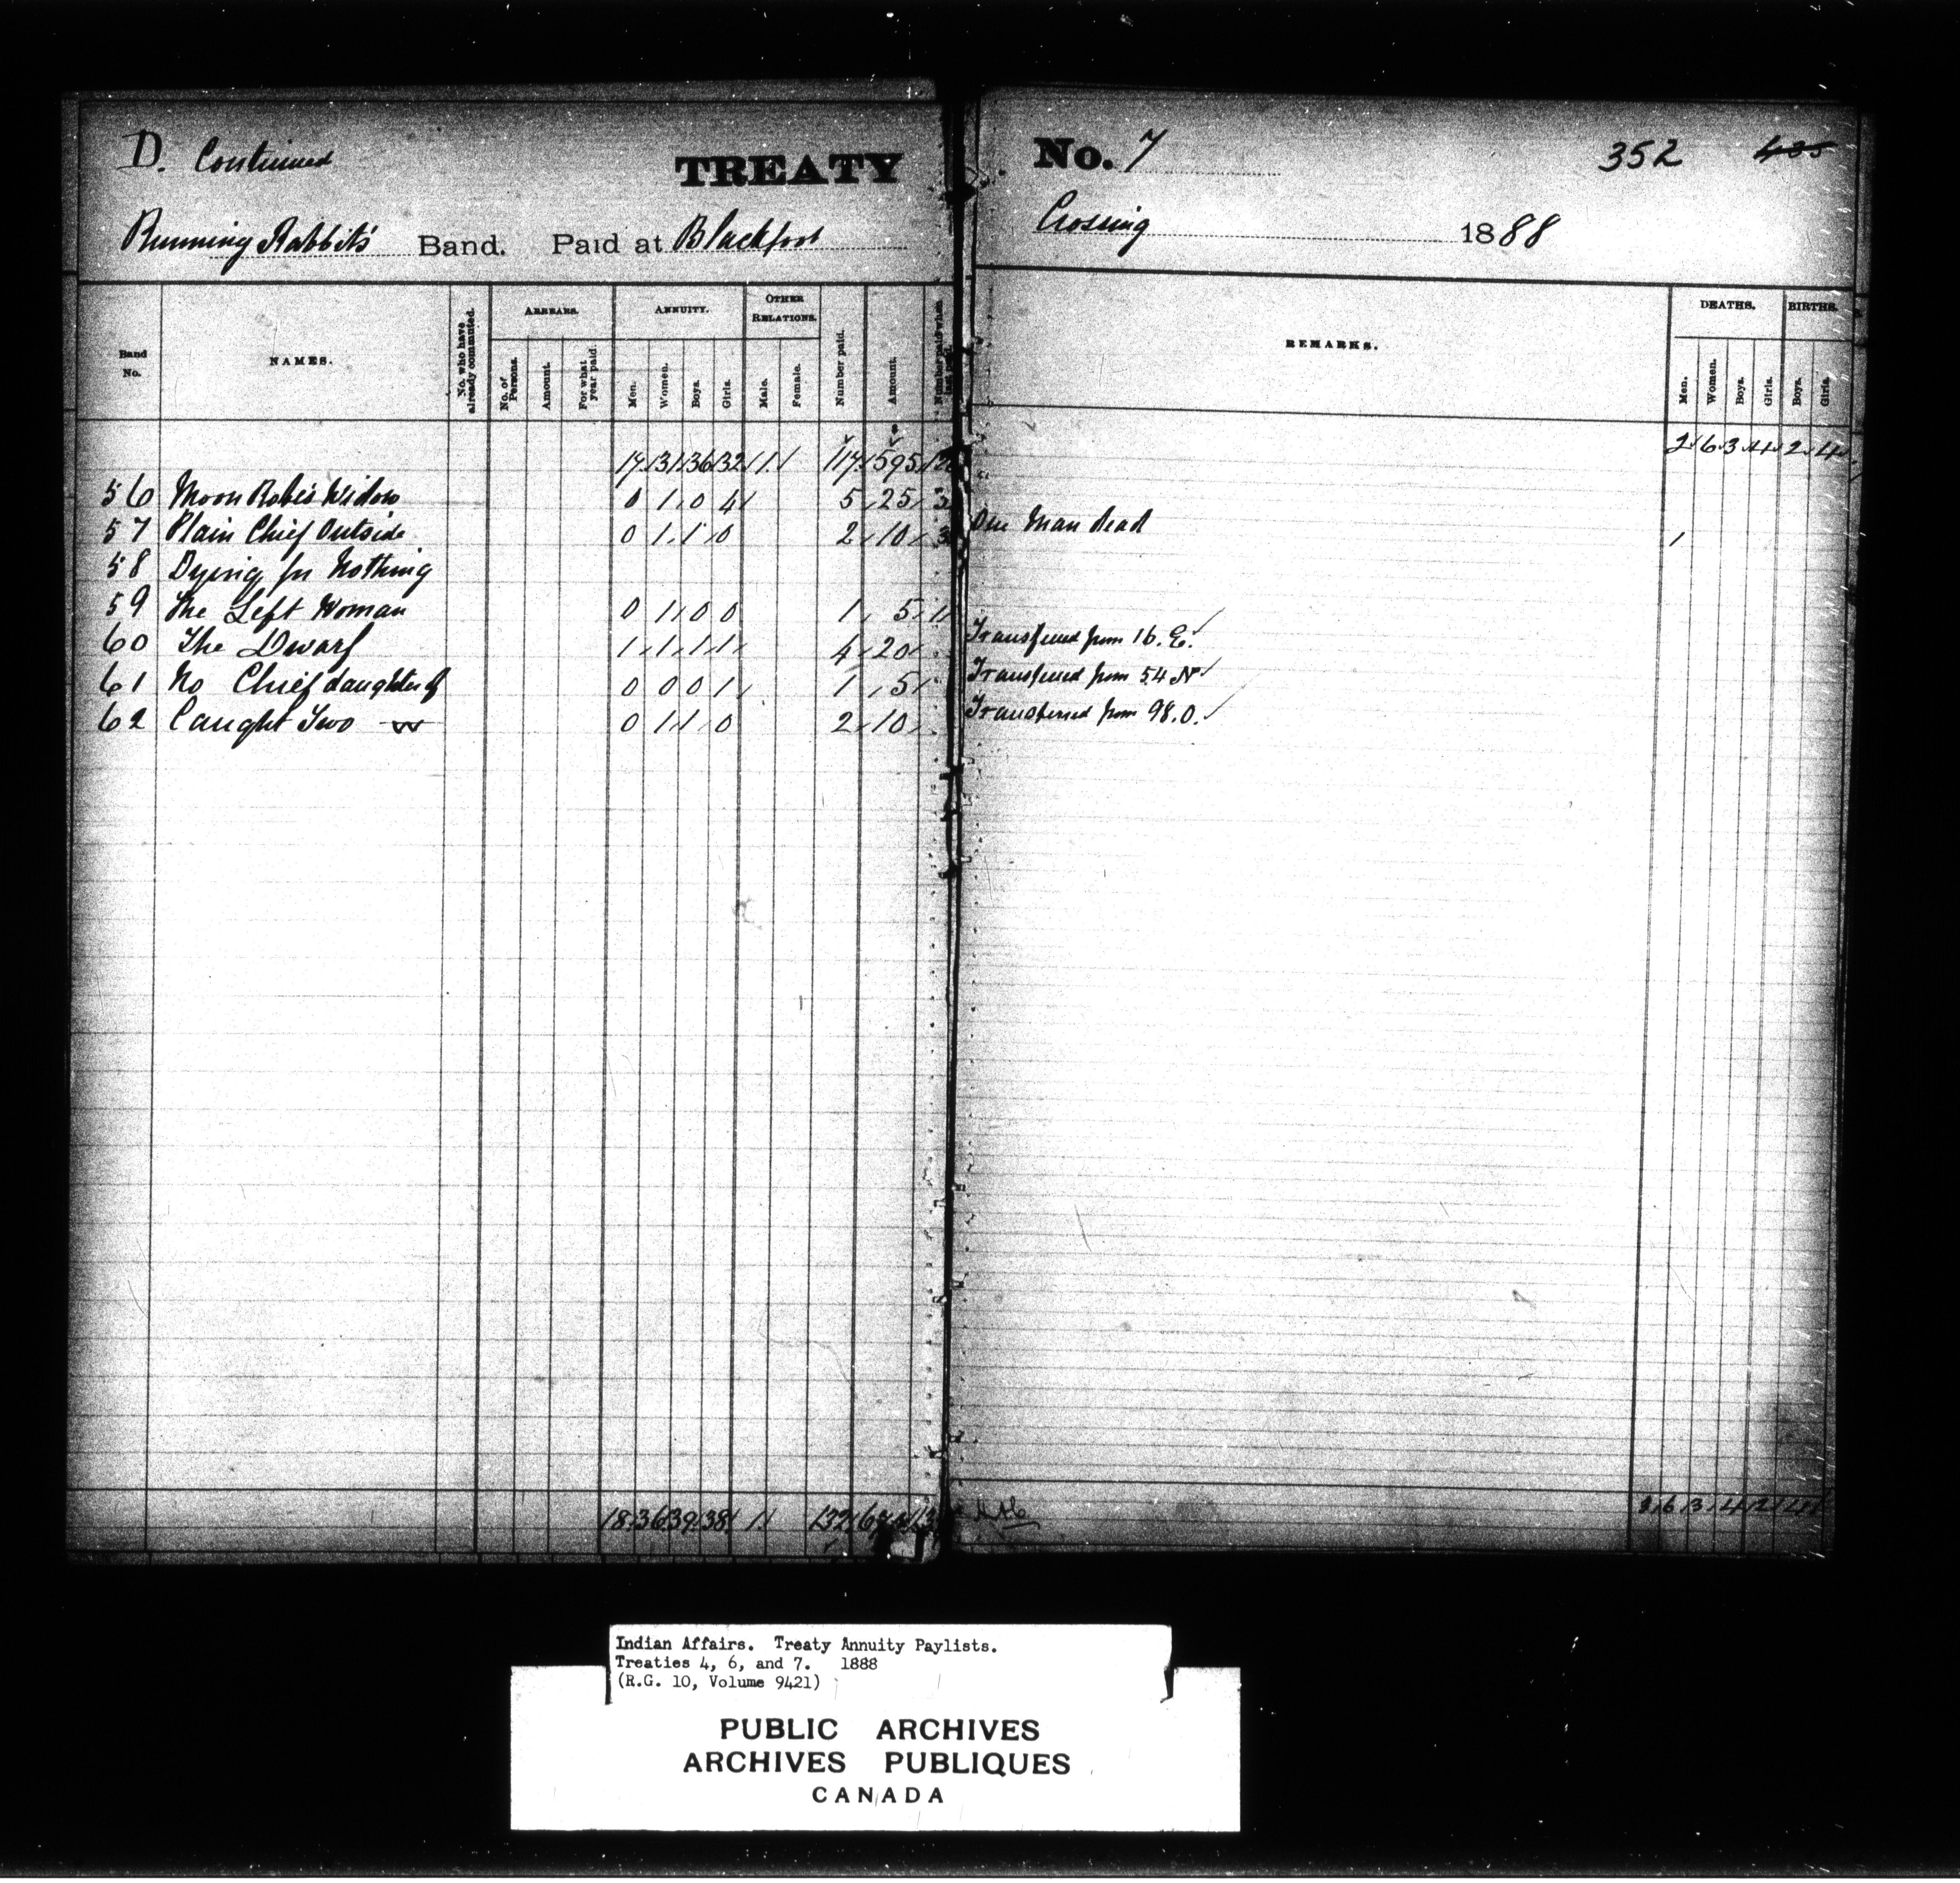 D. Continued TREATY No. 7 352 435
Running Rabbit's Band. Paid at Blackfoot Crossing 1888
Band No. NAMES. No. who have already commuted. ARREARS. No. of Persons. Amount. For what year paid. ANNUITY. Men. Women. Boys. Girls. OTHER RELATIONS. Male. Female. Number paid. Amount. Number paid when last paid. REMARKS. DEATHS. Men. Women. Boys. Girls. BIRTHS. Boys. Girls.
17 31 36 32 1 117 595 2 6 3 4 2 4
56 Moon Robe's Widow 0 1 0 4 5 25 3
57 Plain Chief Outside 0 1 1 0 2 10 3 One Man dead 1
58 Dying for Nothing
59 The Left Woman 0 1 0 0 1 5 1
60 The Dwarf 1 1 1 1 4 20 Transferred from 16. E.
61 No Chief daughter of 0 0 0 1 1 5 Transferred from 54 N
62 Caught Two W 0 1 1 0 2 10 Transferred from 98. O.
18 36 39 38 1 132 3 6 3 4 2 4
Indian Affairs. Treaty Annuity Paylists.
Treaties 4, 6, and 7. 1888
(R.G. 10, Volume 9421)
PUBLIC ARCHIVES
ARCHIVES PUBLIQUES
CANADA